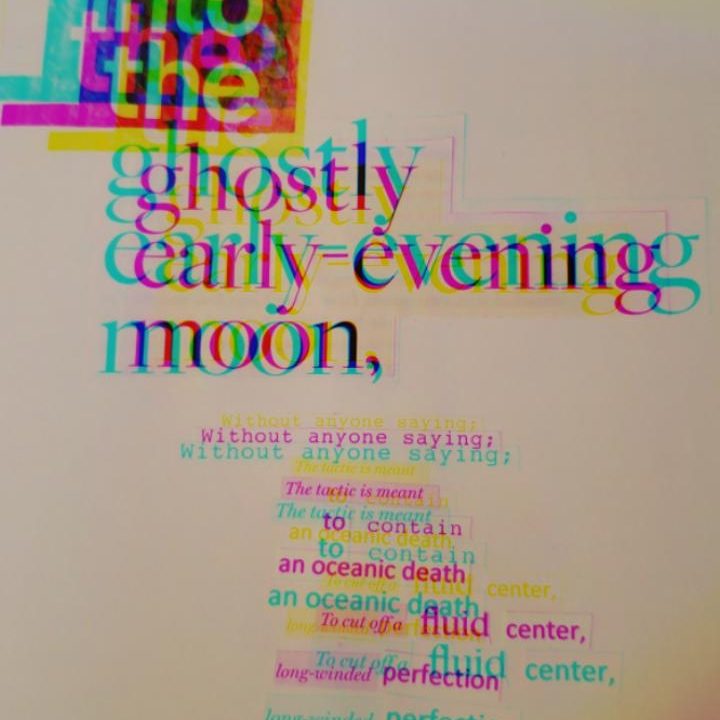 into
the
ghostly
early-evening
moon,
Without anyone saying;
The tactic is meant
to contain
an oceanic death
To cut off a fluid center,
long-winded perfection